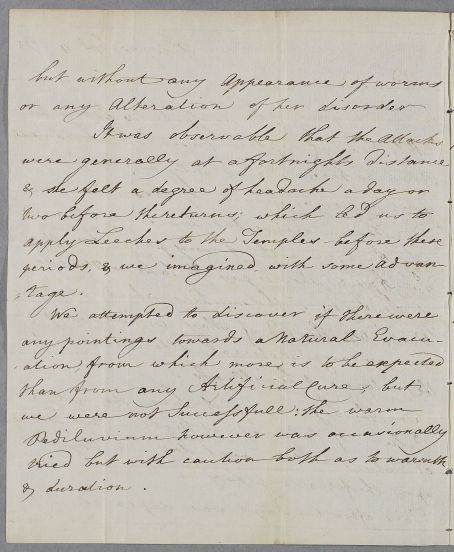 but without any Appearance of worms
or any Alteration of her disorder
It was observable that the Attacks
were generally at a fortnights Distance
& she felt a degree of headache a day or
two before the returns; which led us to
apply Leeches to the Temples before these
periods, & we imagined with some advan-
tage.
We attempted to discover if there were
any pointings towards a Natural Evacu-
ation, from which more is to be expected
than from any Artificial Cure, but
we were not Successfull; the warm
Pediluvium however was occasionally
tried but with caution both as to warmth
& duration.